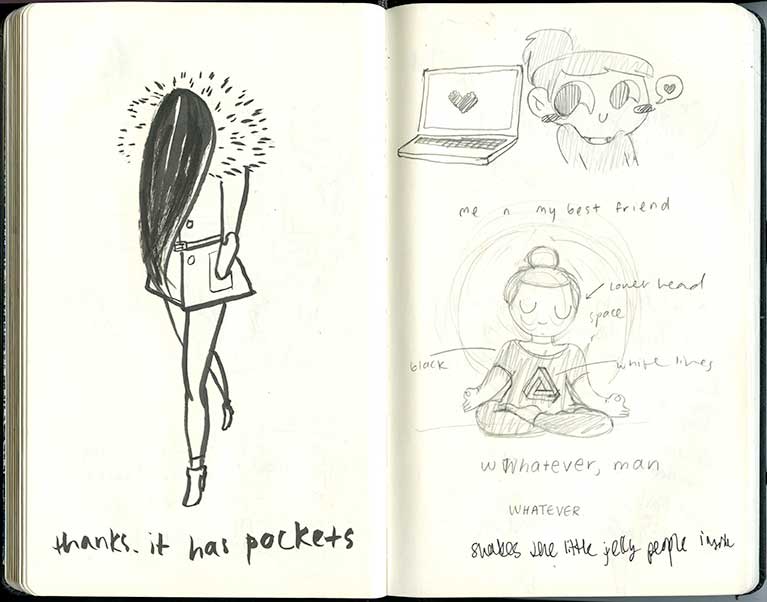 thanks. it has pockets
me n my best friend
lower head
space
black
white lines
wWhatever, man
WHATEVER
little jelly people inside